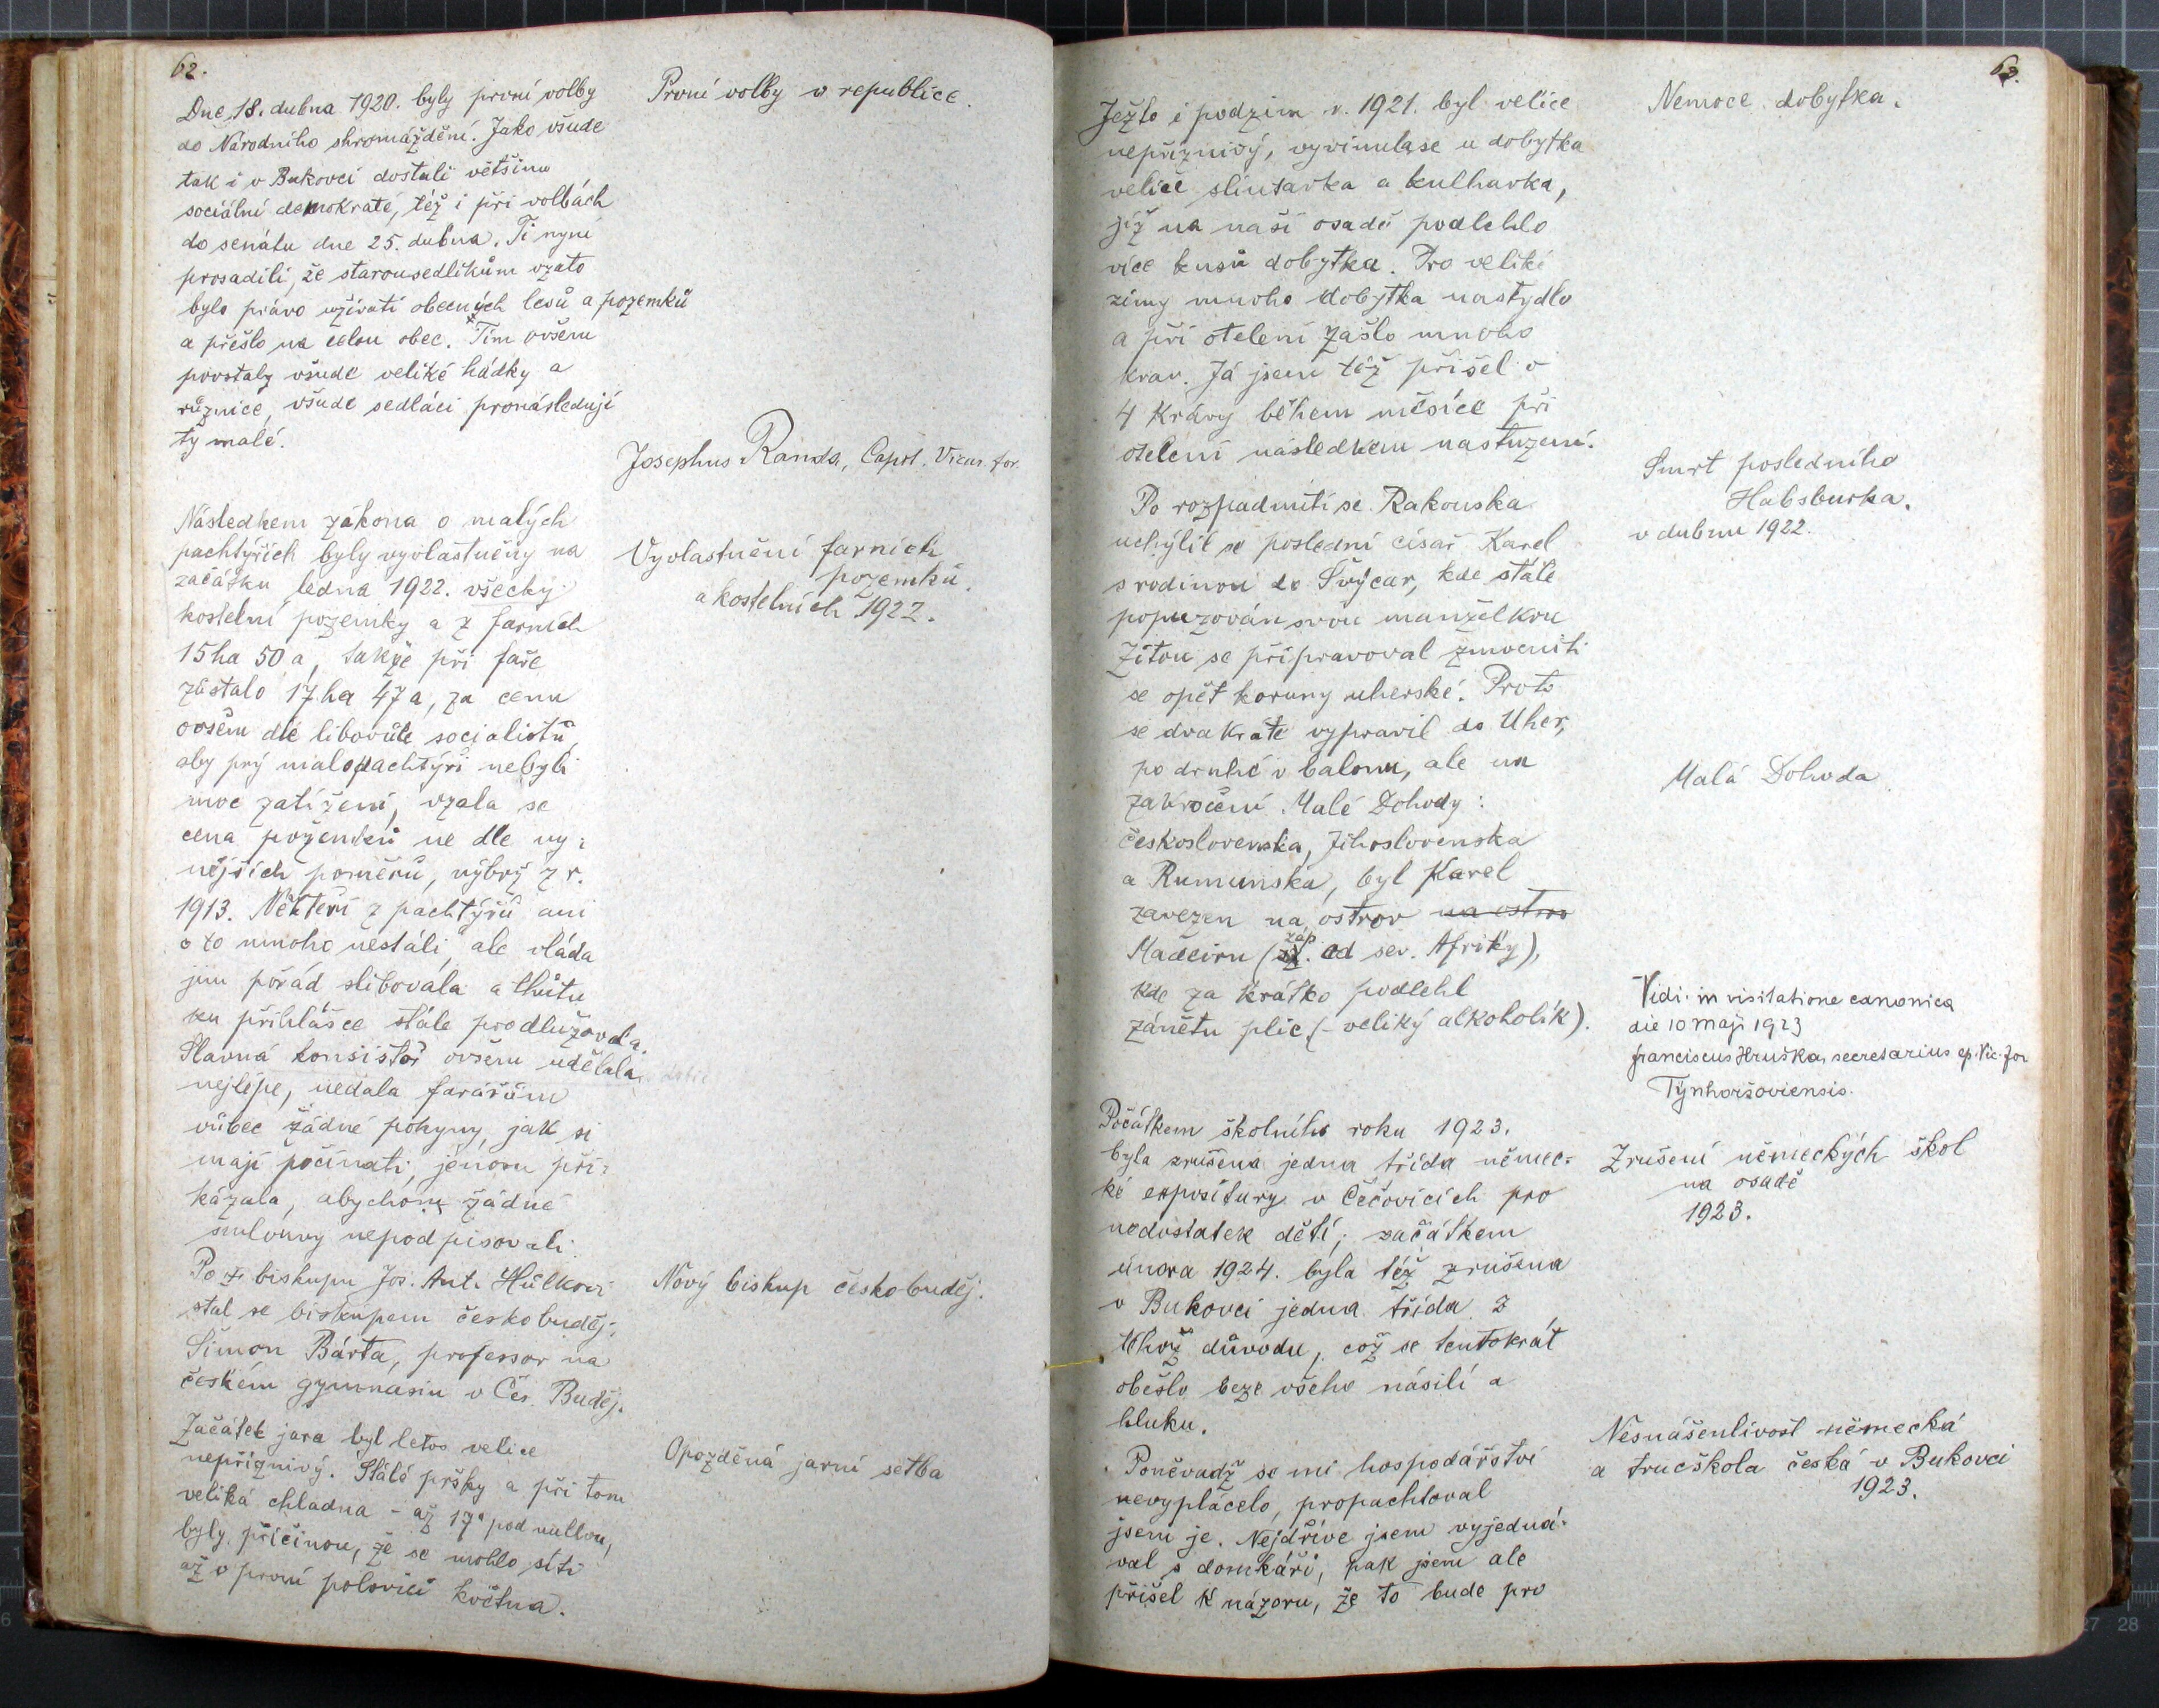 62.
Dne 18. dubna 1920. byly první volby
do Národního shromáždění. Jako všude
tak i v Bukovci dostali většinu
sociální demokraté, též i při volbách
do senátu dne 25. dubna. Ti nyní
prosadili, že starousedlíkům vzato
bylo právo užívati obecných lesů a pozemků
a přešlo na celou obec. Tím ovšem
povstaly všude veliké hádky a
různice, všude sedláci pronásledují
ty malé.
První volby v republice.
Josephus Randa, Capit. Vicar. for.
Následkem zákona o malých
pachtýřích byly vyvlastněny na
začátku ledna 1922. všecky
kostelní pozemky a z farních
15 ha 50 a, takže při faře
zůstalo 17 ha 47 a, za cenu
ovšem dle libovůle socialistů,
aby prý malopachtýři nebyli
moc zatíženi, vzala se
cena pozemků ne dle ny-
nějších poměrů, nýbrž z r.
1913. Někteří z pachtýřů ani
o to mnoho nestáli, ale vláda
jim pořád slibovala a lhůtu
ku přihlášce stále prodlužovala.
Slavná konsistoř ovšem udělala
nejlépe, nedala farářům
vůbec žádné pokyny, jak si
mají počínati, jenom při-
kázala, abychom žádné
smlouvy nepodpisovali.
Vyvlastnění farních
pozemků
a kostelních 1922.
Po † biskupu Jos. Ant. Hůlkovi
stal se biskupem českobuděj.
Šimon Bárta, professor na
českém gymnasiu v Čes. Buděj.
Nový biskup českobuděj.
Začátek jara byl letos velice
nepříznivý. Stálé pršky a při tom
veliká chladna - až 17° pod nullou,
byly příčinou, že se mohlo síti
až v první polovici května.
Opozděná jarní setba
63.
Ježto i podzim r. 1921. byl velice
nepříznivý, vyvinula se u dobytka
velice slintavka a kulhavka,
jíž na naší osadě podlehlo
více kusů dobytka. Pro veliké
zimy mnoho dobytka nastydlo
a při otelení zašlo mnoho
krav. Já jsem též přišel o
4 krávy během měsíce při
otelení následkem nastuzení.
Nemoce dobytka.
Po rozpadnutí se Rakouska
uchýlil se poslední císař Karel
s rodinou do Švýcar, kde stále
popuzován svou manželkou
Zitou se připravoval zmocniti
se opět koruny uherské. Proto
se dvakráte vypravil do Uher,
po druhé v balonu, ale na
zakročení Malé Dohody:
československa, Jihoslovenska
a Rumunska, byl Karel
zavezen na ostrov na ostrov
Madeiru (záp. od sev. Afriky),
kde za krátko podlehl
zánětu plic (- veliký alkoholík).
Smrt posledního
Habsburka.
v dubnu 1922.
Malá Dohoda
Vidi in visitatione canonica
die 10 maji 1923
franciscus Hruška, secretarius ep. Vic. for
Týnhoršoviensis.
Počátkem školního roku 1923.
byla zrušena jedna třída němec-
ké expositury v Čečovicích pro
nedostatek dětí; začátkem
února 1924. byla též zrušena
v Bukovci jedna třída z
téhož důvodu, což se tentokrát
obešlo beze všeho násilí a
hluku.
Zrušení německých škol
na osadě
1923.
Poněvadž se mi hospodářství
nevyplácelo, propachtoval
jsem je. Nejdříve jsem vyjedná-
val s domkáři, pak jsem ale
přišel k názoru, že to bude pro
Nesnášenlivost německá
a trucškola česká v Bukovci
1923.